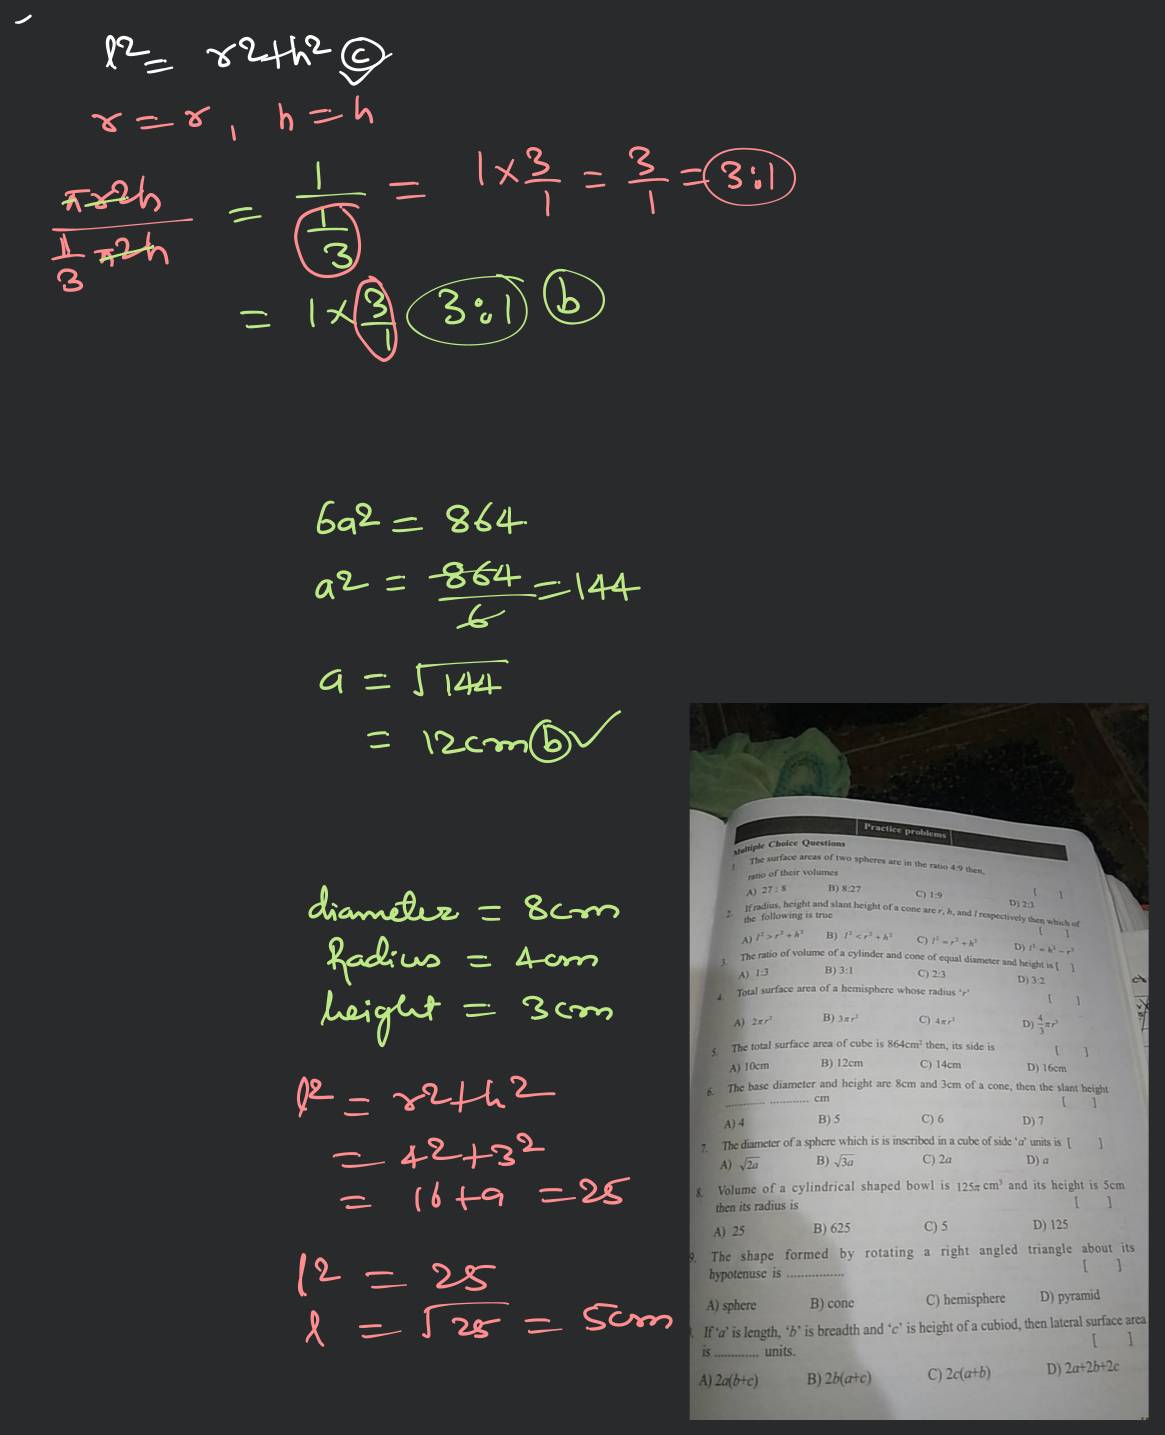 l2 = r2+h2 ©
r = r, h = h
πr2h / 1/3 πr2h = 1 / 1/3 = 1 × 3/1 = 3/1 = 3:1
= 1 × 3/1 3:1 b
6a2 = 864
a2 = 864/6 = 144
a = √144
= 12cm b ✓
diameter = 8cm
Radius = 4cm
height = 3cm
l2 = r2+h2
= 42+32
= 16+9 = 25
l2 = 25
l = √25 = 5cm
Practice problems
Multiple Choice Questions
1. The surface areas of two spheres are in the ratio 4:9 then,
ratio of their volumes [ ]
A) 27 : 8 B) 8:27 C) 1:9 D) 2:3
2. If radius, height and slant height of a cone are r, h, and l respectively then which of
the following is true [ ]
A) l² > r² + h² B) l² < r² + h² C) l² = r² + h² D) l² = h² − r²
3. The ratio of volume of a cylinder and cone of equal diameter and height is [ ]
A) 1:3 B) 3:1 C) 2:3 D) 3:2
4. Total surface area of a hemisphere whose radius 'r' [ ]
A) 2πr² B) 3πr² C) 4πr² D) 4/3 πr³
5. The total surface area of cube is 864cm² then, its side is [ ]
A) 10cm B) 12cm C) 14cm D) 16cm
6. The base diameter and height are 8cm and 3cm of a cone, then the slant height
............ ............ cm [ ]
A) 4 B) 5 C) 6 D) 7
7. The diameter of a sphere which is is inscribed in a cube of side 'a' units is [ ]
A) √2a B) √3a C) 2a D) a
8. Volume of a cylindrical shaped bowl is 125π cm³ and its height is 5cm
then its radius is [ ]
A) 25 B) 625 C) 5 D) 125
9. The shape formed by rotating a right angled triangle about its
hypotenuse is ............... [ ]
A) sphere B) cone C) hemisphere D) pyramid
If 'a' is length, 'b' is breadth and 'c' is height of a cubiod, then lateral surface area
is ............ units. [ ]
A) 2a(b+c) B) 2b(a+c) C) 2c(a+b) D) 2a+2b+2c